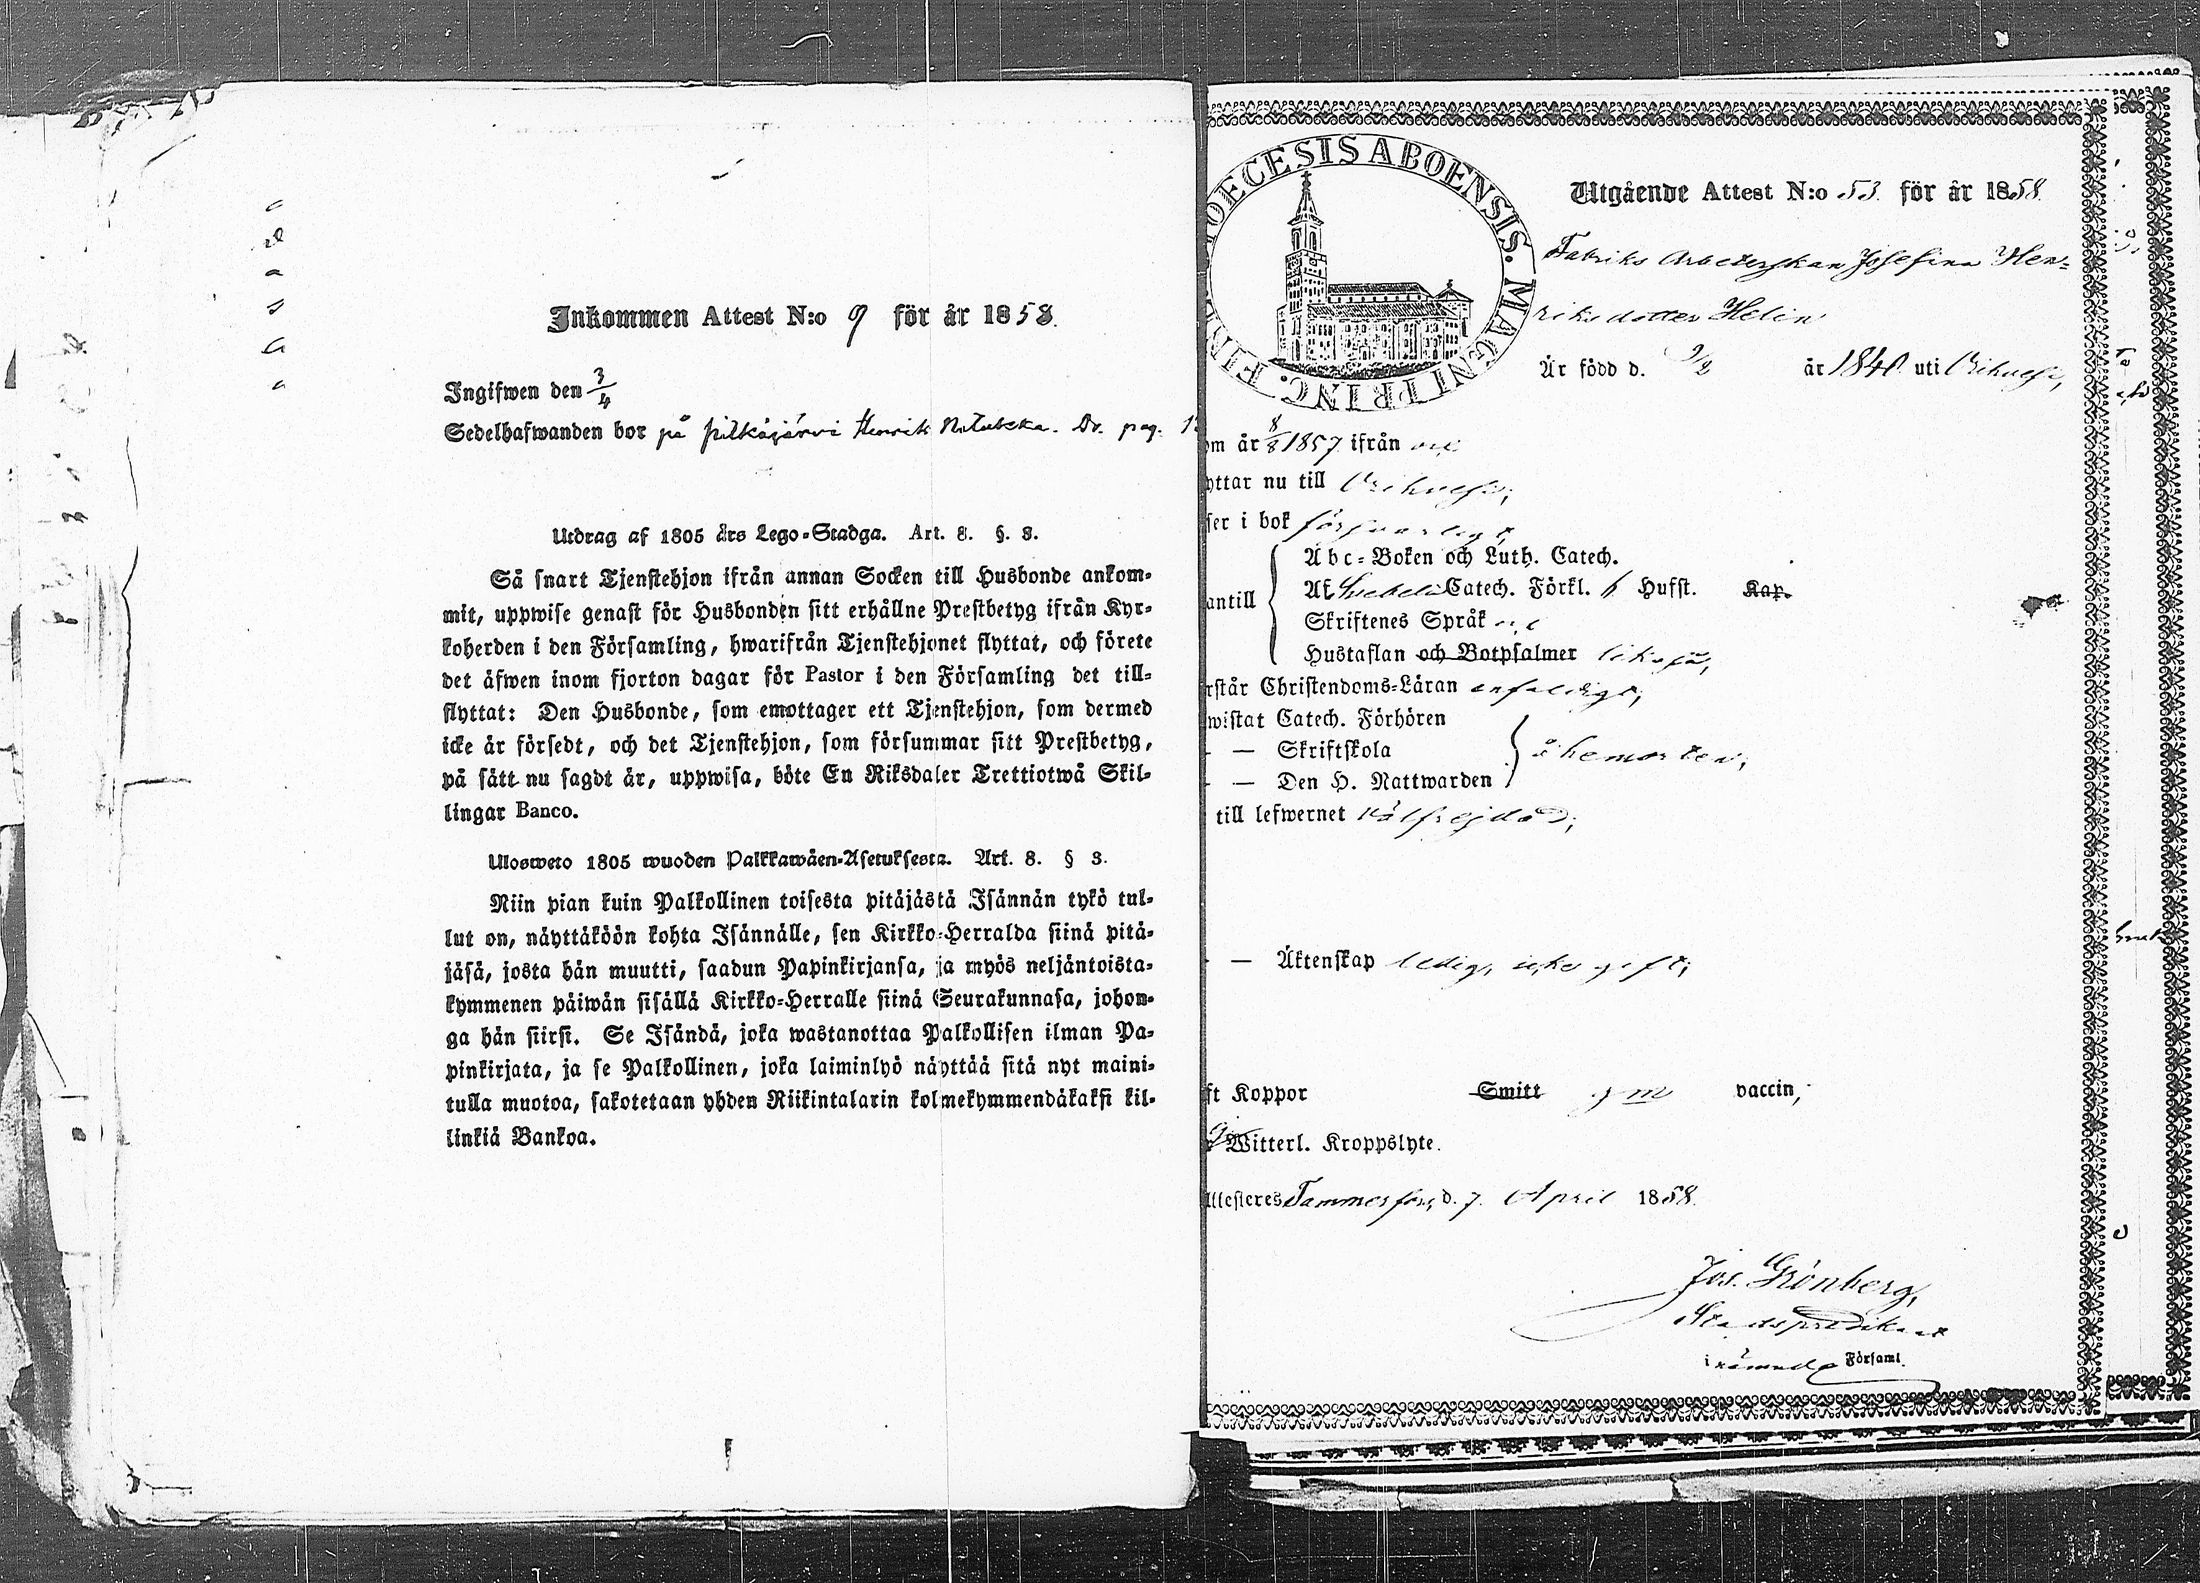 Inkommen Attest N:o 9 för år 1858.
Ingifwen den 3/4
Sedelhafwanden bor på Pitkäjärvi Henrik
Utdrag af 1805 års Lego-Stadga. Art. 8. §. 3.
Så snart Tjenstehjon ifrån annan Socken till Husbonde ankom-
mit, uppwise genast för Husbonden sitt erhållne Prestbetyg ifrån Kyr-
koherden i den Församling, hwarifrån Tjenstehjonet flyttat, och förete
det äfwen inom fjorton dagar för Pastor i den Församling det till-
flyttat: Den Husbonde, som emottager ett Tjenstehjon, som dermed
icke är försedt, och det Tjenstehjon, som försummar sitt Prestbetyg,
på sätt nu sagdt är, uppwisa, böte En Riksdaler Trettiotwå Skil-
lingar Banco.
Ulosweto 1805 wuoden Palkkawäen-Asetuksesta. Art. 8. § 3.
Niin pian kuin Palkollinen toisesta pitäjästä Isännän tykö tul-
lut on, näyttäköön kohta Isännälle, sen Kirkko-Herralda siinä pitä-
jäsä, josta hän muutti, saadun Papinkirjansa, ja myös neljäntoista-
kymmenen päiwän sisällä Kirkko-Herralle siinä Seurakunnasa, johon-
ga hän siirsi. Se Isändä, joka wastanottaa Palkollisen ilman Pa-
pinkirjata, ja se Palkollinen, joka laiminlyö näyttää sitä nyt maini-
tulla muotoa, sakotetaan yhden Riikintalarin kolmekymmendäkaksi kil-
linkiä Bankoa.
DIOECESIS ABOENSIS. MAGNI PRINC. FINL.
Utgående Attest N:o 53 för år 1858.
Fabriks Arbeterskan Josefina Hen-
riksdotter Helin
Är född d. år 1840 uti
om år 8/8 1857 ifrån
yttar nu till
ser i bok försvarligt,
antill
Abc-Boken och Luth. Catech.
Af Svebelii Catech. Förkl. Husft. Kap.
Skriftenes Språk
Hustaflan och Botpsalmer likaså,
rstår Christendoms-Läran enfaldigt,
wistat Catech. Förhören
— Skriftskola
— Den H. Nattwarden
å hemorten,
till lefwernet välfrejdad,
— Äktenskap ledig, icke gift,
ft Koppor Smitt gm vaccin,
Witterl. Kroppslyte.
Attesteres Tammerfors, d. 7. April 1858.
Jos. Grönberg,
Stadspredikant
i nämnde Församl.